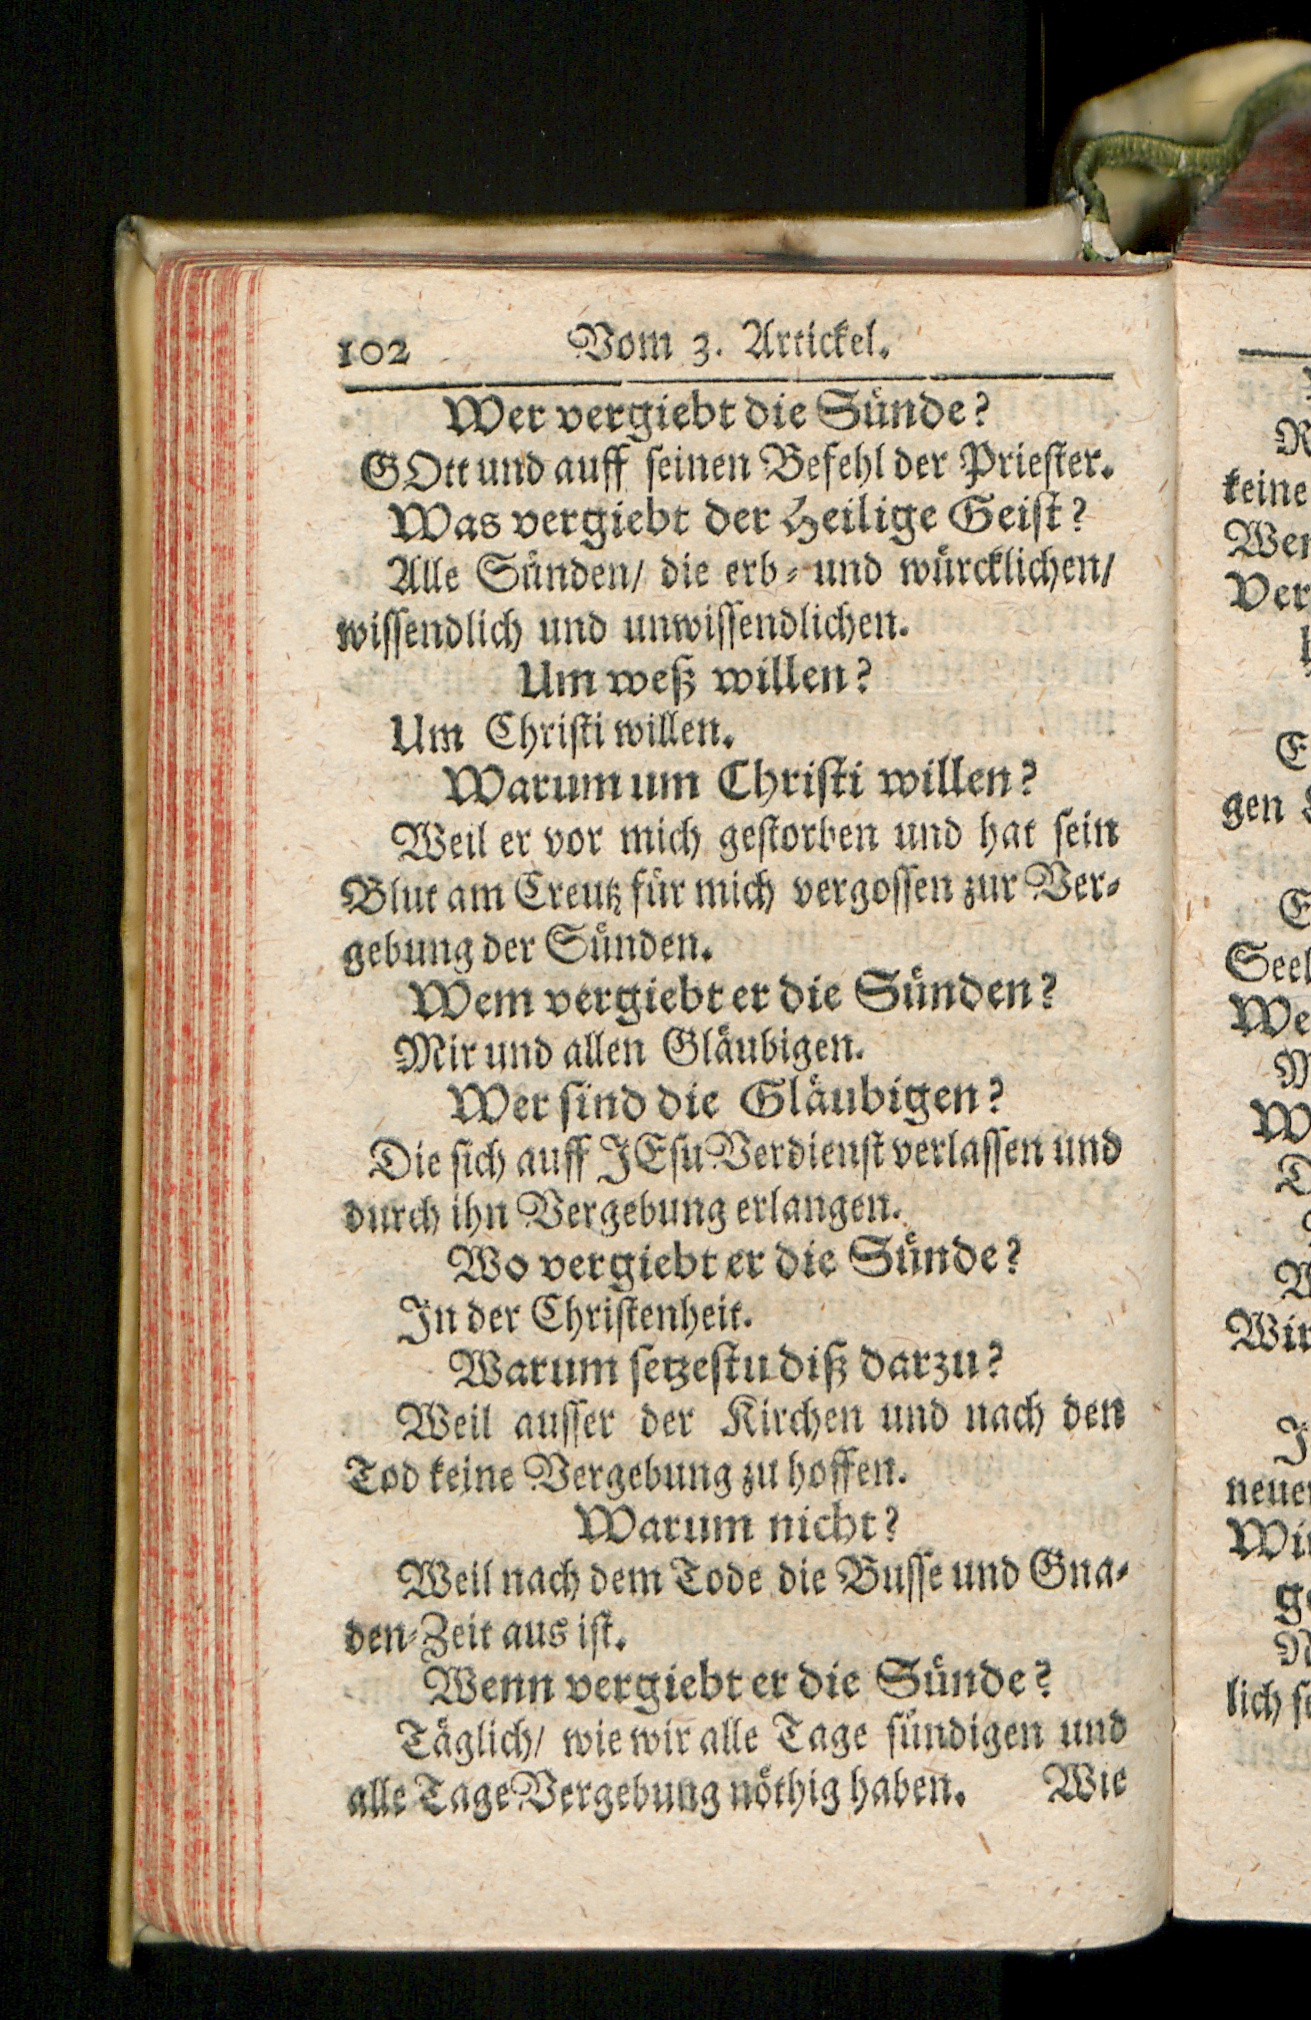 102 Vom 3. Artickel.
Wer vergiebt die Sünde?
GOtt und auff seinen Befehl der Priester.
Was vergiebt der Heilige Geist?
Alle Sünden/ die erb- und würcklichen/
wissendlich und unwissendlichen.
Um weß willen?
Um Christi willen.
Warum um Christi willen?
Weil er vor mich gestorben und hat sein
Blut am Creutz für mich vergossen zur Ver-
gebung der Sünden.
Wem vergiebt er die Sünden?
Mir und allen Gläubigen.
Wer sind die Gläubigen?
Die sich auff JEsu Verdienst verlassen und
durch ihn Vergebung erlangen.
Wo vergiebt er die Sünde?
In der Christenheit.
Warum setzestu diß darzu?
Weil ausser der Kirchen und nach den
Tod keine Vergebung zu hoffen.
Warum nicht?
Weil nach dem Tode die Busse und Gna-
den-Zeit aus ist.
Wenn vergiebt er die Sünde?
Täglich/ wie wir alle Tage sündigen und
alle Tage Vergebung nöthig haben. Wie
keine
gen